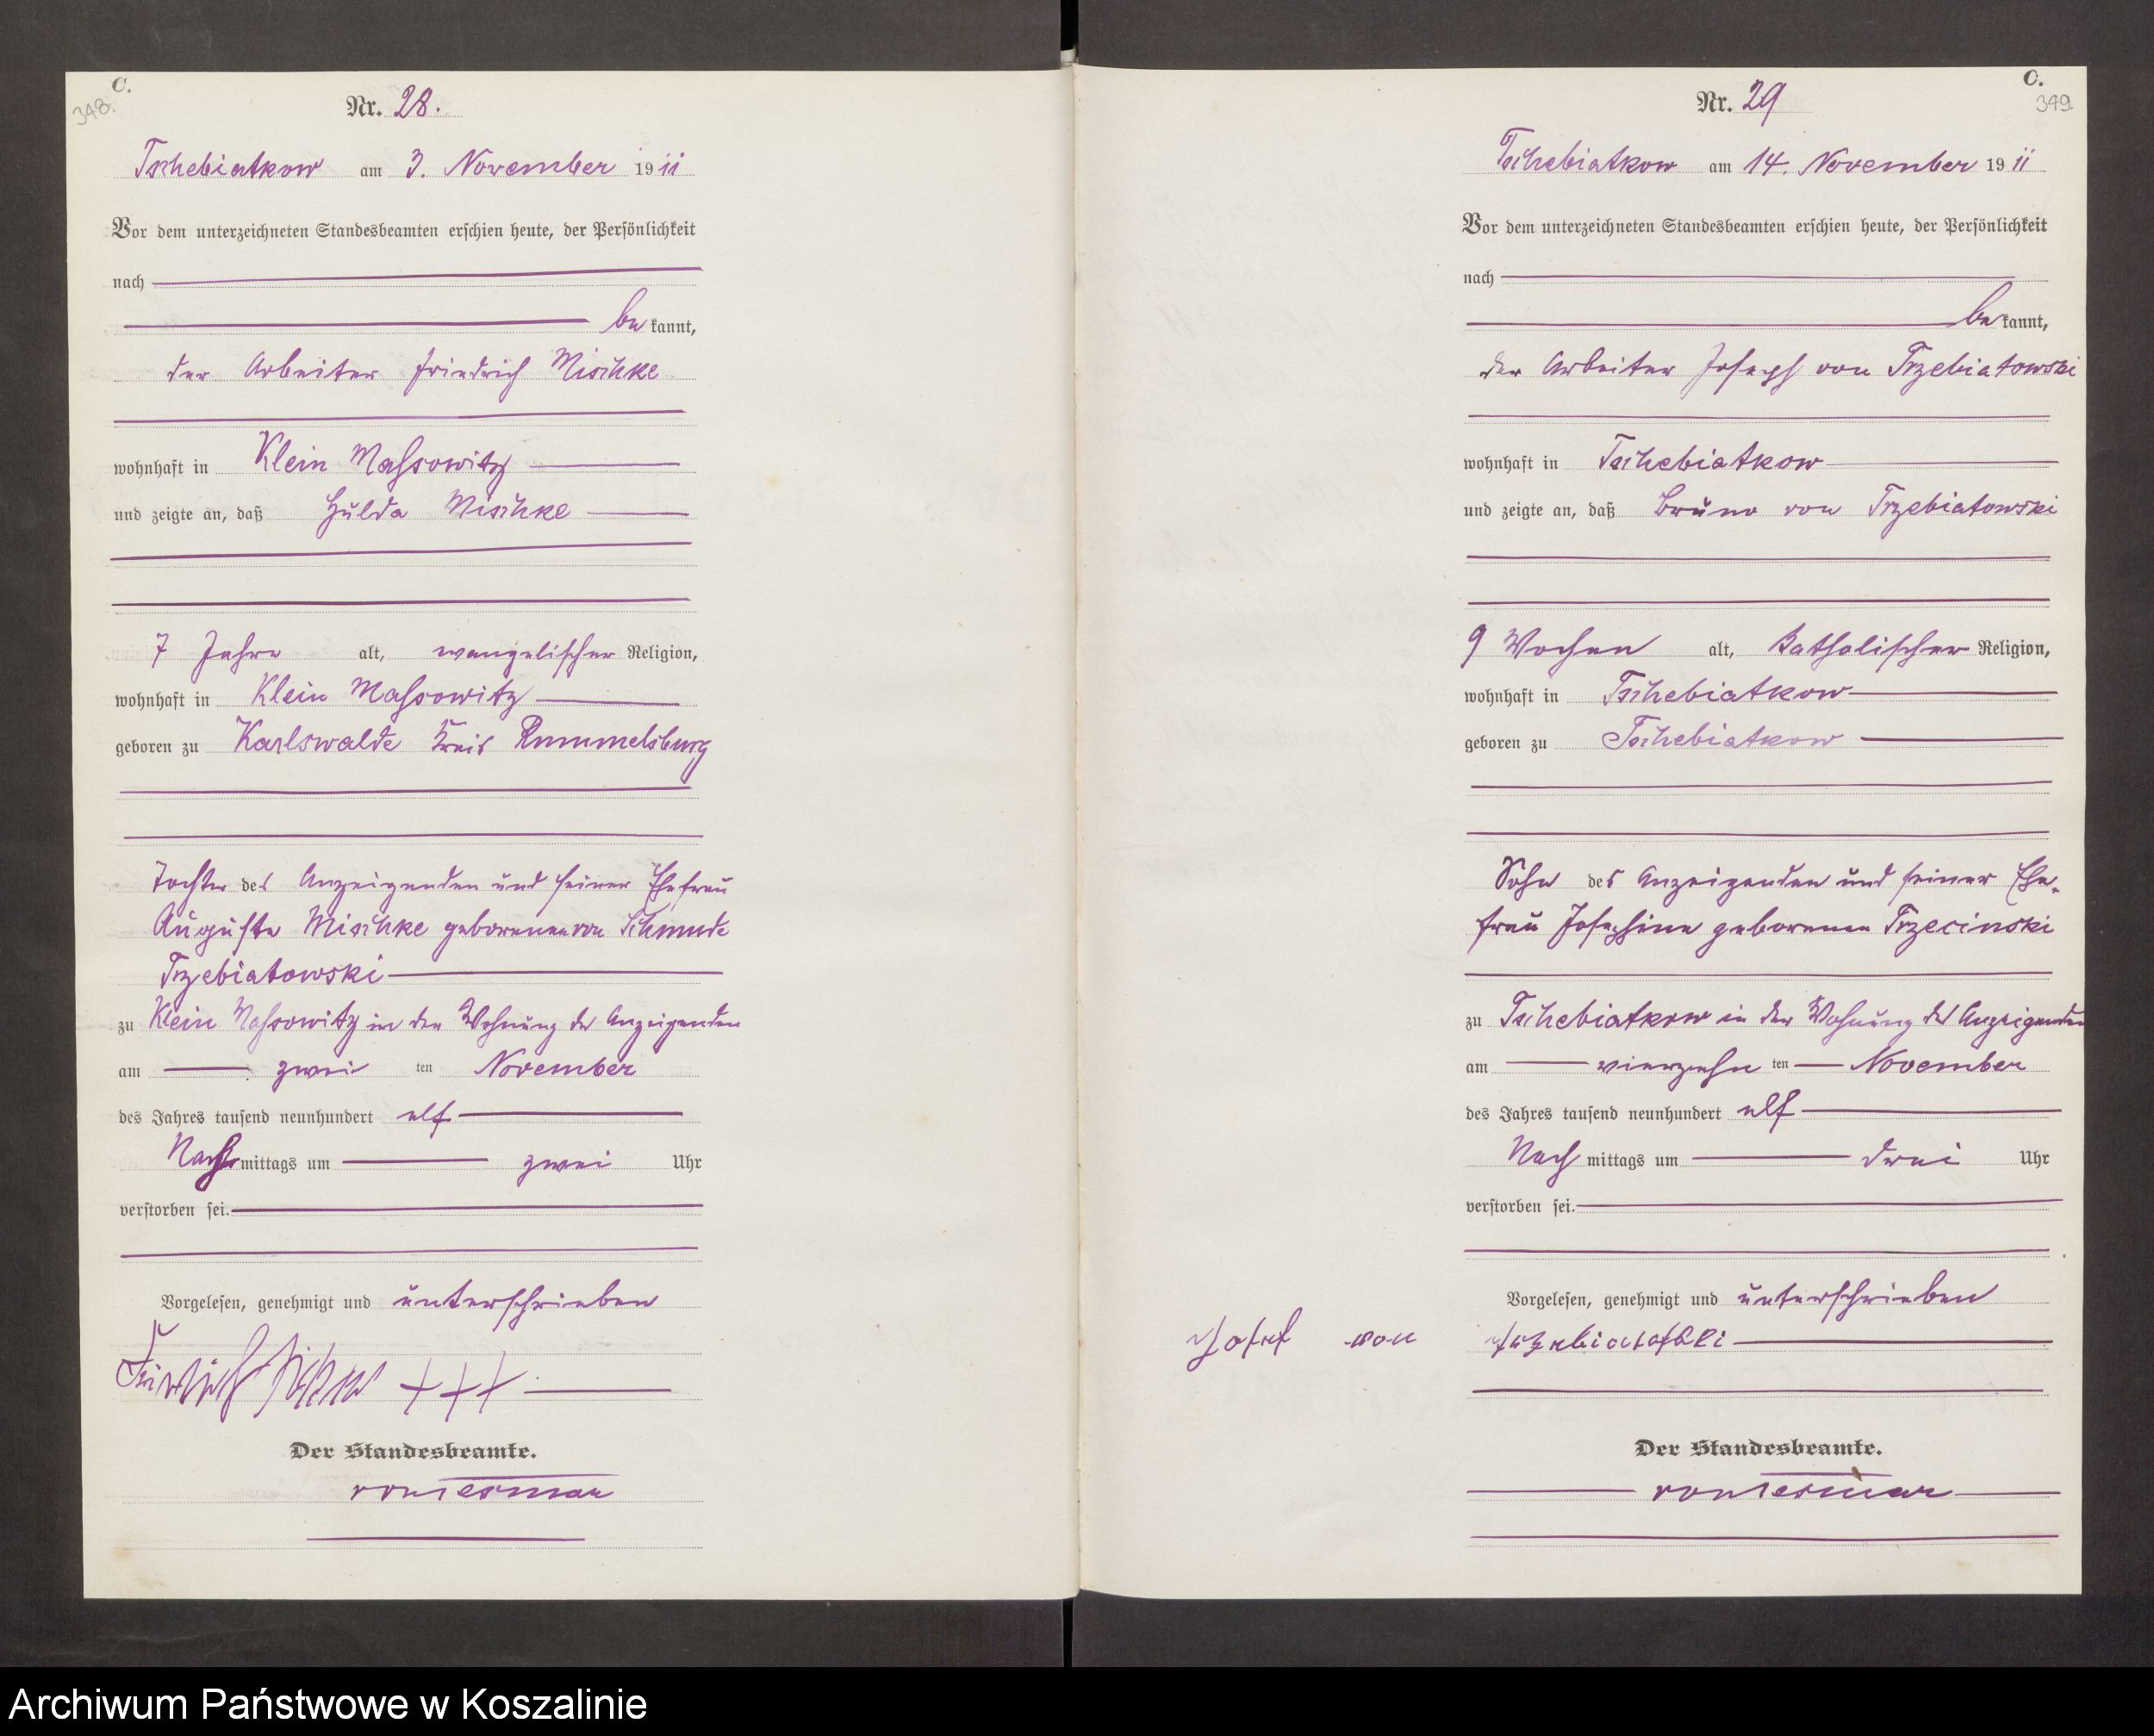 C.
348.
Nr. 28.
Tschebiatkow am 3. November 1911
Vor dem unterzeichneten Standesbeamten erschien heute, der Persönlichkeit
nach
be kannt,
der Arbeiter Friedrich Mischke
wohnhaft in Klein Massowitz
und zeigte an, daß Hulda Mischke
7 Jahre alt, evangelischer Religion,
wohnhaft in Klein Massowitz
geboren zu Karlswalde Kreis Rummelsburg
Tochter des Anzeigenden und seiner Ehefrau
Auguste Mischke geborenen von Schmude
Trzebiatowski
zu Klein Massowitz in der Wohnung der Anzeigenden
am zwei ten November
des Jahres tausend neunhundert elf
Nachmittags um zwei Uhr
verstorben sei.
Vorgelesen, genehmigt und unterschrieben
+++
Der Standesbeamte.
C.
349.
Nr. 29
Tschebiatkow am 14. November 1911
Vor dem unterzeichneten Standesbeamten erschien heute, der Persönlichkeit
nach
be kannt,
der Arbeiter Joseph von Trzebiatowski
wohnhaft in Tschebiatkow
und zeigte an, daß Bruno von Trzebiatowski
9 Wochen alt, Katholischer Religion,
wohnhaft in Tschebiatkow
geboren zu Tschebiatkow
Sohn des Anzeigenden und seiner Ehe-
frau Josephine geborenen Trzecinski
zu Tschebiatkow in der Wohnung des Anzeigenden
am vierzehn ten November
des Jahres tausend neunhundert elf
Nach mittags um drei Uhr
verstorben sei.
Vorgelesen, genehmigt und unterschrieben
Josef von
Der Standesbeamte.
Archiwum Państwowe w Koszalinie